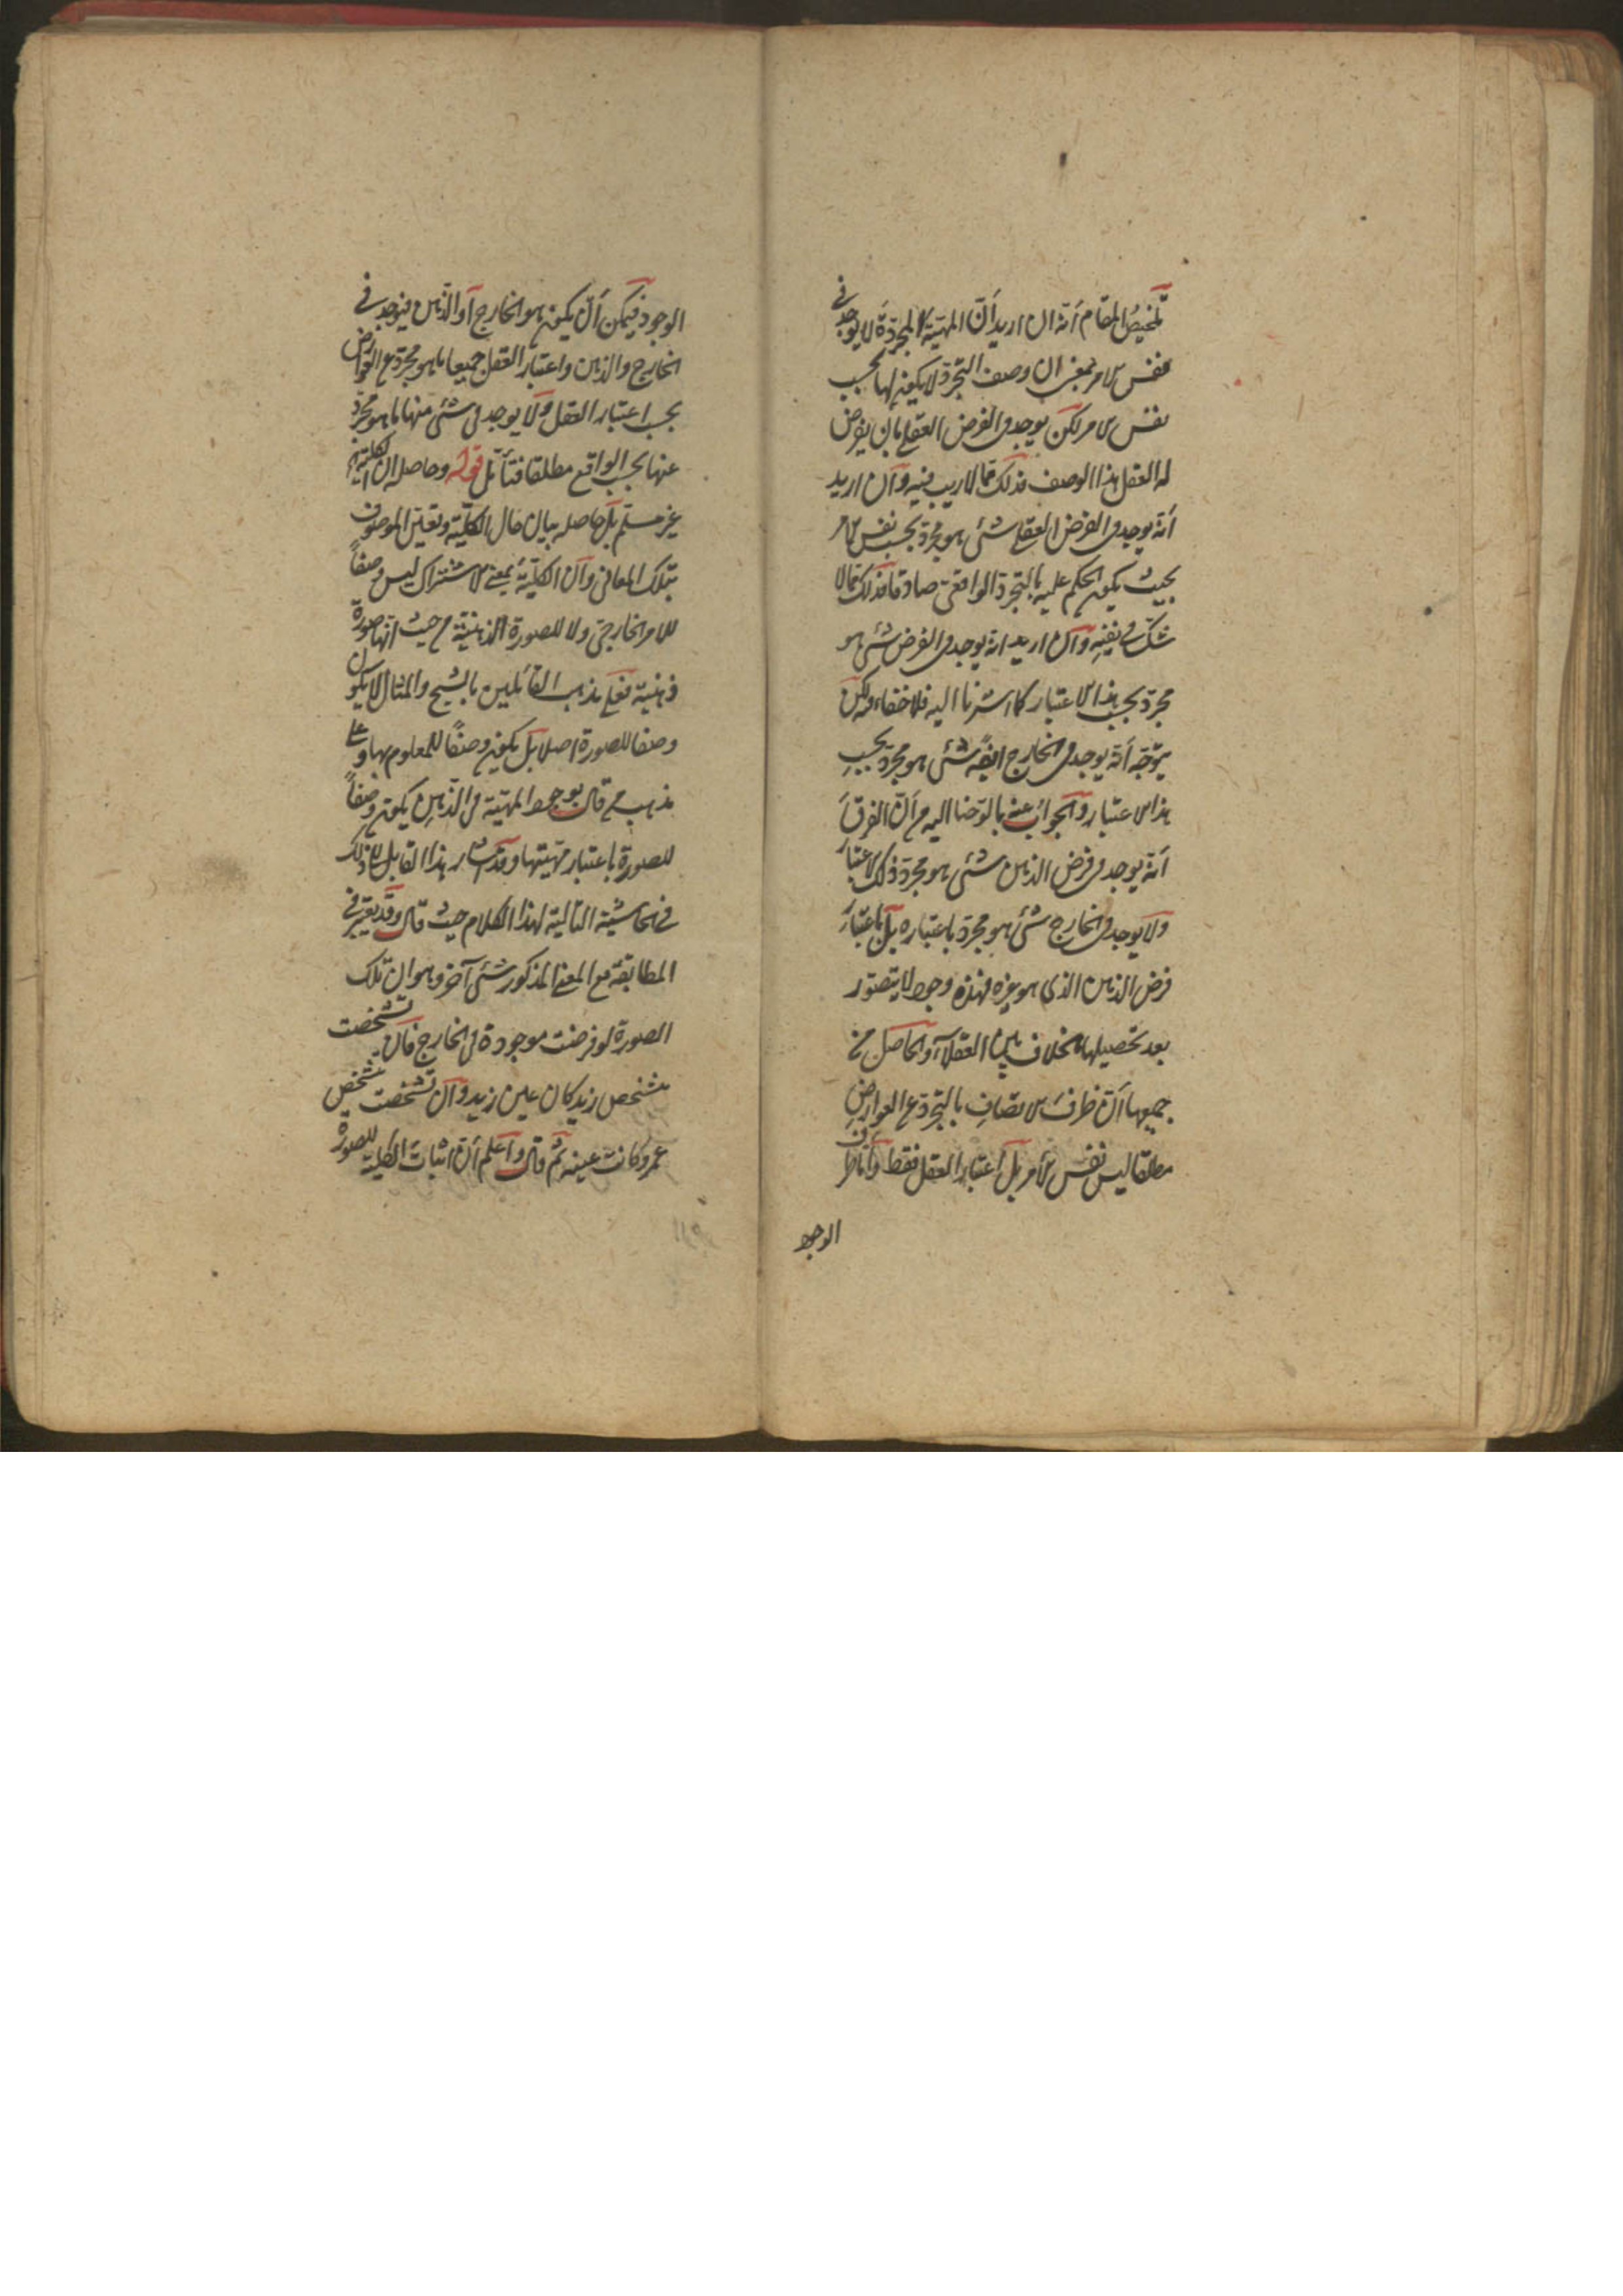 تلخيص المقام أنه ان اريد أنّ المهيّة المجرّدة لا يوجد في
نفس الامر بمعنى ان وصف التجرّد لا يكون لها بحسب
نفس الامر لكن يوجد في الفرض العقلي بان يفرض
له العقل هذا الوصف فذلك ممّا لا ريب فيه وآن اريد
أنه يوجد في الفرض العقلي شئ هو مجرّد بحسب نفس الامر
بحيث يكون الحكم عليه بالتجرّد الواقعي صادقا فذلك ممّا لا
شكّ في نفيه وآن اريد انه يوجد في الفرض شئ هو
مجرّد بحسب هذا الاعتبار كما اشرنا اليه فلا خفاء فيه لكن
يتوجّه أنه يوجد في الخارج ايضًا شئ هو مجرّد بحسب
هذا الاعتبار وآلجواب عنه ما لوّحنا اليه من أنّ الفرق
أنه يوجد في فرض الذهن شئ هو مجرّد بذلك الاعتبار
ولا يوجد في الخارج شئ هو مجرّد باعتباره بل باعتبار
فرض الذهن الذي هو غيره فهذه وجوه لا يتصوّر
بعد تحصيلها خلاف بين العقلاء وآلحاصل من
جميعها أنّ ظرف الاتصاف بالتجرّد عن العوارض
مطلقا ليس نفس الأمر بل اعتبار العقل فقط وآما ظرف
الوجود
الوجود فيمكن أن يكون هو الخارج أو الذهن فيوجد في
الخارج والذهن واعتبار العقل جميعا ما هو مجرّد عن العوارض
بحسب اعتبار العقل ولا يوجد في شئ منها ما هو مجرّد
عنها بحسب الواقع مطلقا فتأمّل قوله وحاصله ان الكلية
غير مسلّم بل حاصله بيان حال الكليّة وتعيّن الموصوف
بتلك المعاني وآن الكليّة بمعنى الاشتراك ليس وصفاً
للامر الخارجي ولا للصورة الذهنيّة من حيث انّها صورة
ذهنية فعلى مذهب القائلين بالشبح والمثال لا يكون
وصفا للصورة اصلا بل يكون وصفًا للمعلوم بها وعلى
مذهب من قال بوجود المهيّة في الذهن يكون وصفاً
للصورة باعتبار مهيّتها وقد اشار هذا القايل الى ذلك
في الحاشية التالية لهذا الكلام حيث قال وقد يعتبر في
المطابقة مع المعنى المذكور شئ آخر وهو ان تلك
الصورة لو فرضت موجودة في الخارج فان تشخصت
بتشخص زيد كان عين زيد وآن تشخصت بتشخص
عمرو كانت عينه ثم قال وآعلم أنّ اثبات الكلية للصورة